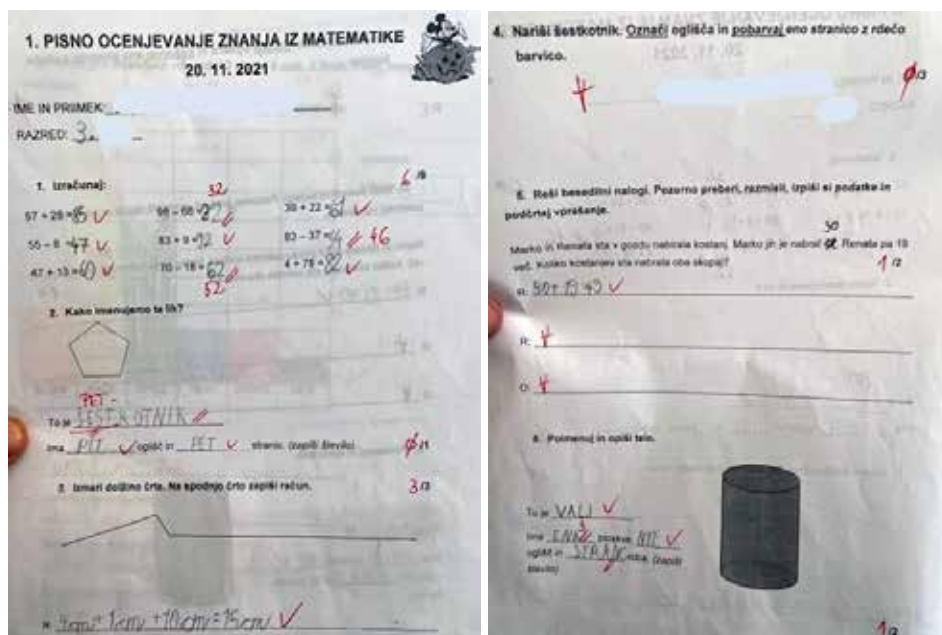 1. PISNO OCENJEVANJE ZNANJA IZ MATEMATIKE
20. 11. 2021
IME IN PRIIMEK:
RAZRED: 3.
1. Izračunaj:
6 /9
32
57 + 28 = 85
39 + 22 = 61
55 - 8 = 47
83 + 9 = 92
83 - 37 = 46
47 + 13 = 60
70 - 18 = 62
4 + 78 = 82
52
2. Kako imenujemo ta lik?
PET-
To je ŠESTKOTNIK
Ima PET oglišč in PET stranic. (zapiši število)
/1
3. Izmeri dolžino črte. Na spodnjo črto zapiši račun.
3 /3
+ 1cm + 10cm = 15cm
4. Nariši šestkotnik. Označi oglišča in pobarvaj eno stranico z rdečo
barvico.
5. Reši besedilni nalogi. Pozorno preberi, razmisli, izpiši si podatke in
podčrtaj vprašanje.
30
Marko in Renata sta v gozdu nabirala kostanj. Marko jih je nabral Renata pa 19
več. Koliko kostanjev sta nabrala oba skupaj?
1 /2
R:
O:
6. Poimenuj in opiši telo.
To je VALJ
Ima ploskve,
oglišč in roba. (zapiši
število)